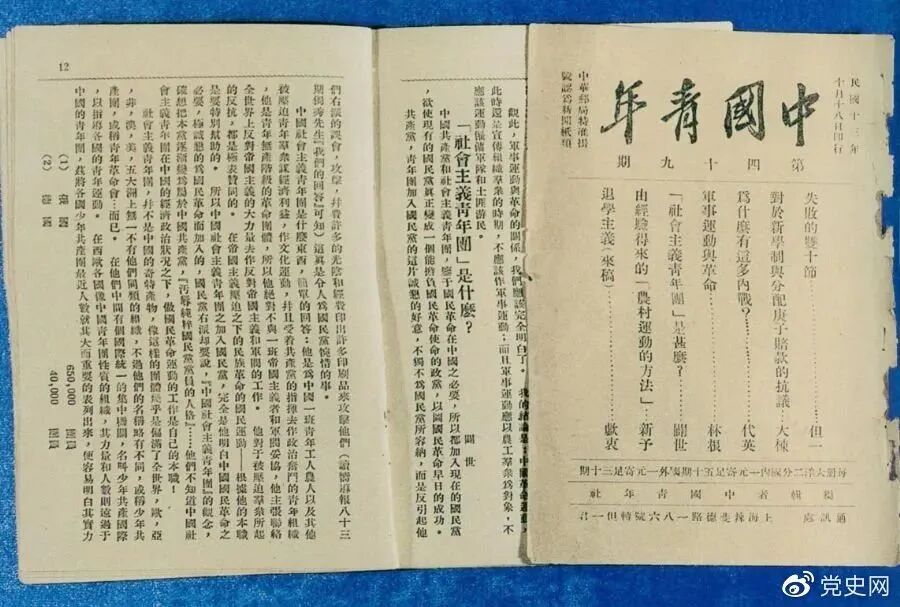 民國十三年
十月十八日印行
中國青年
中華郵局特准掛
號認爲新聞紙類
第四十九期
失敗的雙十節……但一
對於新學制與分配庚子賠款的抗議…大棟
爲什麼有這多內戰?……代英
軍事運動與革命……林根
「社會主義青年團」是甚麼?……闘世
由經驗得來的「農村運動的方法」…新予
退學主義（來稿）……獻衷
每册大洋二分國內一元寄足五十期國外一元寄足三十期
編輯者中國青年社
通訊處 上海辣斐德路一八六號轉但一君
觀此，軍事運動與革命的關係，我們應該完全明白了。
此時還是宣傳組織羣衆的時期，不應該作軍事運動；而且軍事運動應以農工羣衆爲對象，不
應該運動僱傭軍隊和土匪游民。
「社會主義青年團」是什麼?
闘世
中國共產黨和社會主義青年團，鑒于國民革命在中國之必要，所以都加入現在的國民黨
，欲使現有的國民黨眞正變成一個能擔負國民革命使命的政黨，以圖國民革命早日的成功。
共產黨，青年團加入國民黨的這片誠懇的好意，不獨不爲國民黨所容納，而是反引起他
12
們右派的誤會，攻擊，幷費許多的光陰和經費印出許多印刷品來攻擊他們（請讀嚮導報八十三
期獨秀先生『我們的回答』可知）這眞是令人爲國民黨惋惜的事。
中國社會主義青年團是什麼東西，簡單的回答：他是爲中國一班青年工人農人以及其他
被壓迫青年羣衆謀經濟利益，作文化運動，幷且受着共產黨的指揮去作政治奮鬥的青年組織
，他是青年無產階級的革命團體，所以他絕對不與一班帝國主義者和軍閥妥協，他主張聯絡
全世界上反對帝國主義的大力量去作反對帝國主義和軍閥的工作。 他對于被壓迫羣衆所起
的反抗，都是極表贊同的。 在帝國主義壓迫之下的民族革命的國民運動——根據他的本職
是要特別幫助的。 所以中國社會主義青年團之加入國民黨，完全是他明白中國國民革命之
必要，極誠懇的爲國民革命而加入的，國民黨右派却要說，『中國社會主義青年團』的觀念，
確想把本黨逐漸變爲屬於中國共產黨，『汚辱純粹國民黨黨員的人格』……他們不知道中國社
會主義青年團在中國的經濟政治狀况之下，做國民革命運動的工作是自己的本職！
社會主義青年團，幷不是中國的奇特產物，像這樣的團體幾乎是偏滿了全世界，歐，亞
，非，澳，美，五大洲上無一不有他們同類的組織，不過他們的名稱略有不同，或稱少年共
產團，或稱青年革命會……而已。 在他們中間有個國際統一的集中機關，名叫少年共產國際
，以指導各國的青年運動。 在西歐各國像中國青年團性質的組織，其力量和人數則遠過于
中國的青年團，玆將各國少年共產團最近人數就其大而重要的表列出來，使容易明白其實力
(1) 650,000
(2) 40,000
党史网